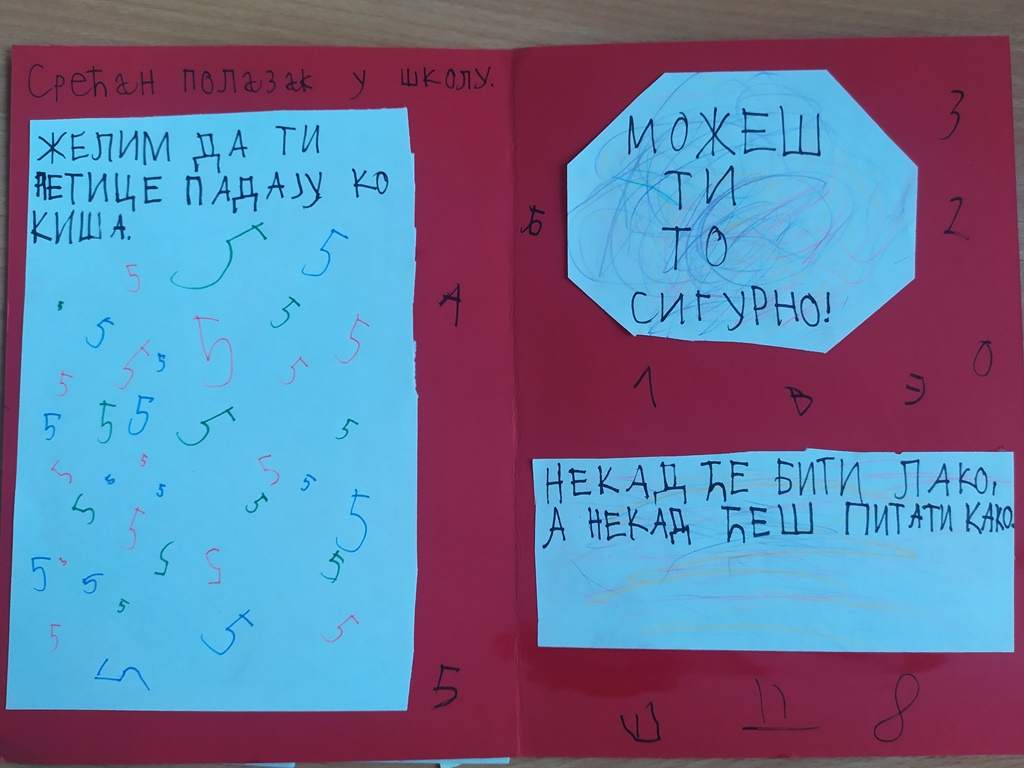 Срећан полазак у школу.
ЖЕЛИМ ДА ТИ
ПЕТИЦЕ ПАДАЈУ КО
КИША.
5 5
5
5
5 5 5
5 5 5 5
5
5 5 5 5 5
5 5 5
5 5 5
5 5 5
5 5 5
5 5 5
5 5
5 5 5
5
А
5
МОЖЕШ
ТИ
ТО
СИГУРНО!
Б
3
2
0
1 В Э
НЕКАД ЋЕ БИТИ ЛАКО,
А НЕКАД ЋЕШ ПИТАТИ КАКО.
8